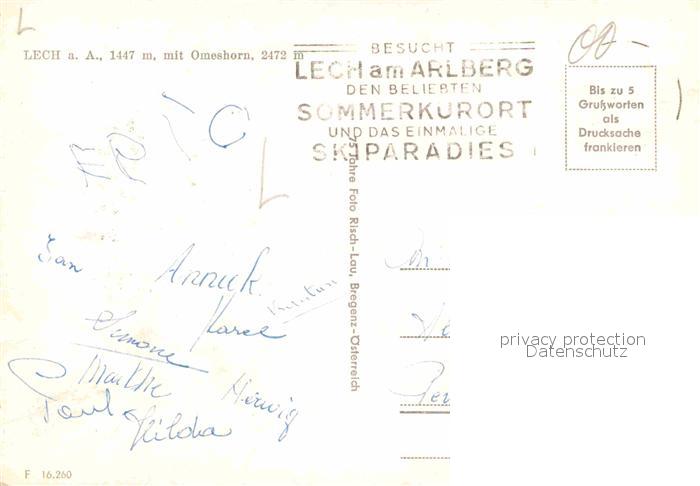 LECH a. A., 1447 m, mit Omeshorn, 2472 m
BESUCHT
LECH am ARLBERG
DEN BELIEBTEN
SOMMERKURORT
UND DAS EINMALIGE
SKIPARADIES
Bis zu 5
Grußworten
als
Drucksache
frankieren
ERIC
Jan
Annick
Karel
Simone
Marthe
Herwig
Paul
Hilda
75 Jahre Foto Risch-Lau, Bregenz-Österreich
privacy protection
Datenschutz
F 16.260